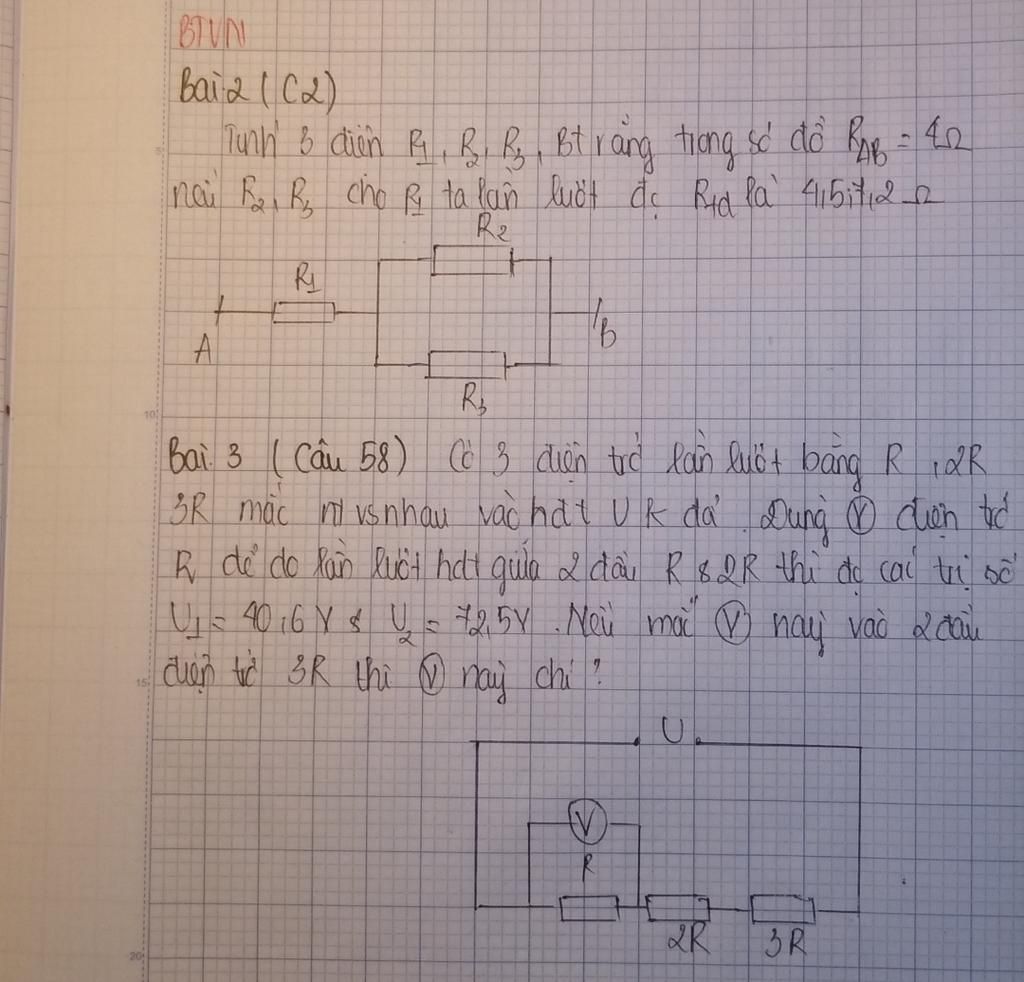 BTVN
Bài 2 ( C2)
Tính 3 điện R1, R2, R3, Bt rằng trong sơ đồ RAB = 4Ω
nếu R2, R3 cho R1 ta lần lượt đc Rtđ là 4,5;7,2 Ω
R2
R1
A
B
R3
10
Bài 3 ( Câu 58) Có 3 điện trở lần lượt bằng R , 2R
3R mắc nt vs nhau vào hđt U k đổi. Dùng V điện trở
Rv để đo lần lượt hđt giữa 2 đầu R & 2R thì đc các trị số
U1 = 40,6V & U2 = 72,5V. Nếu mắc V này vào 2 đầu
điện trở 3R thì V này chỉ ?
15
U
V
R
2R 3R
20